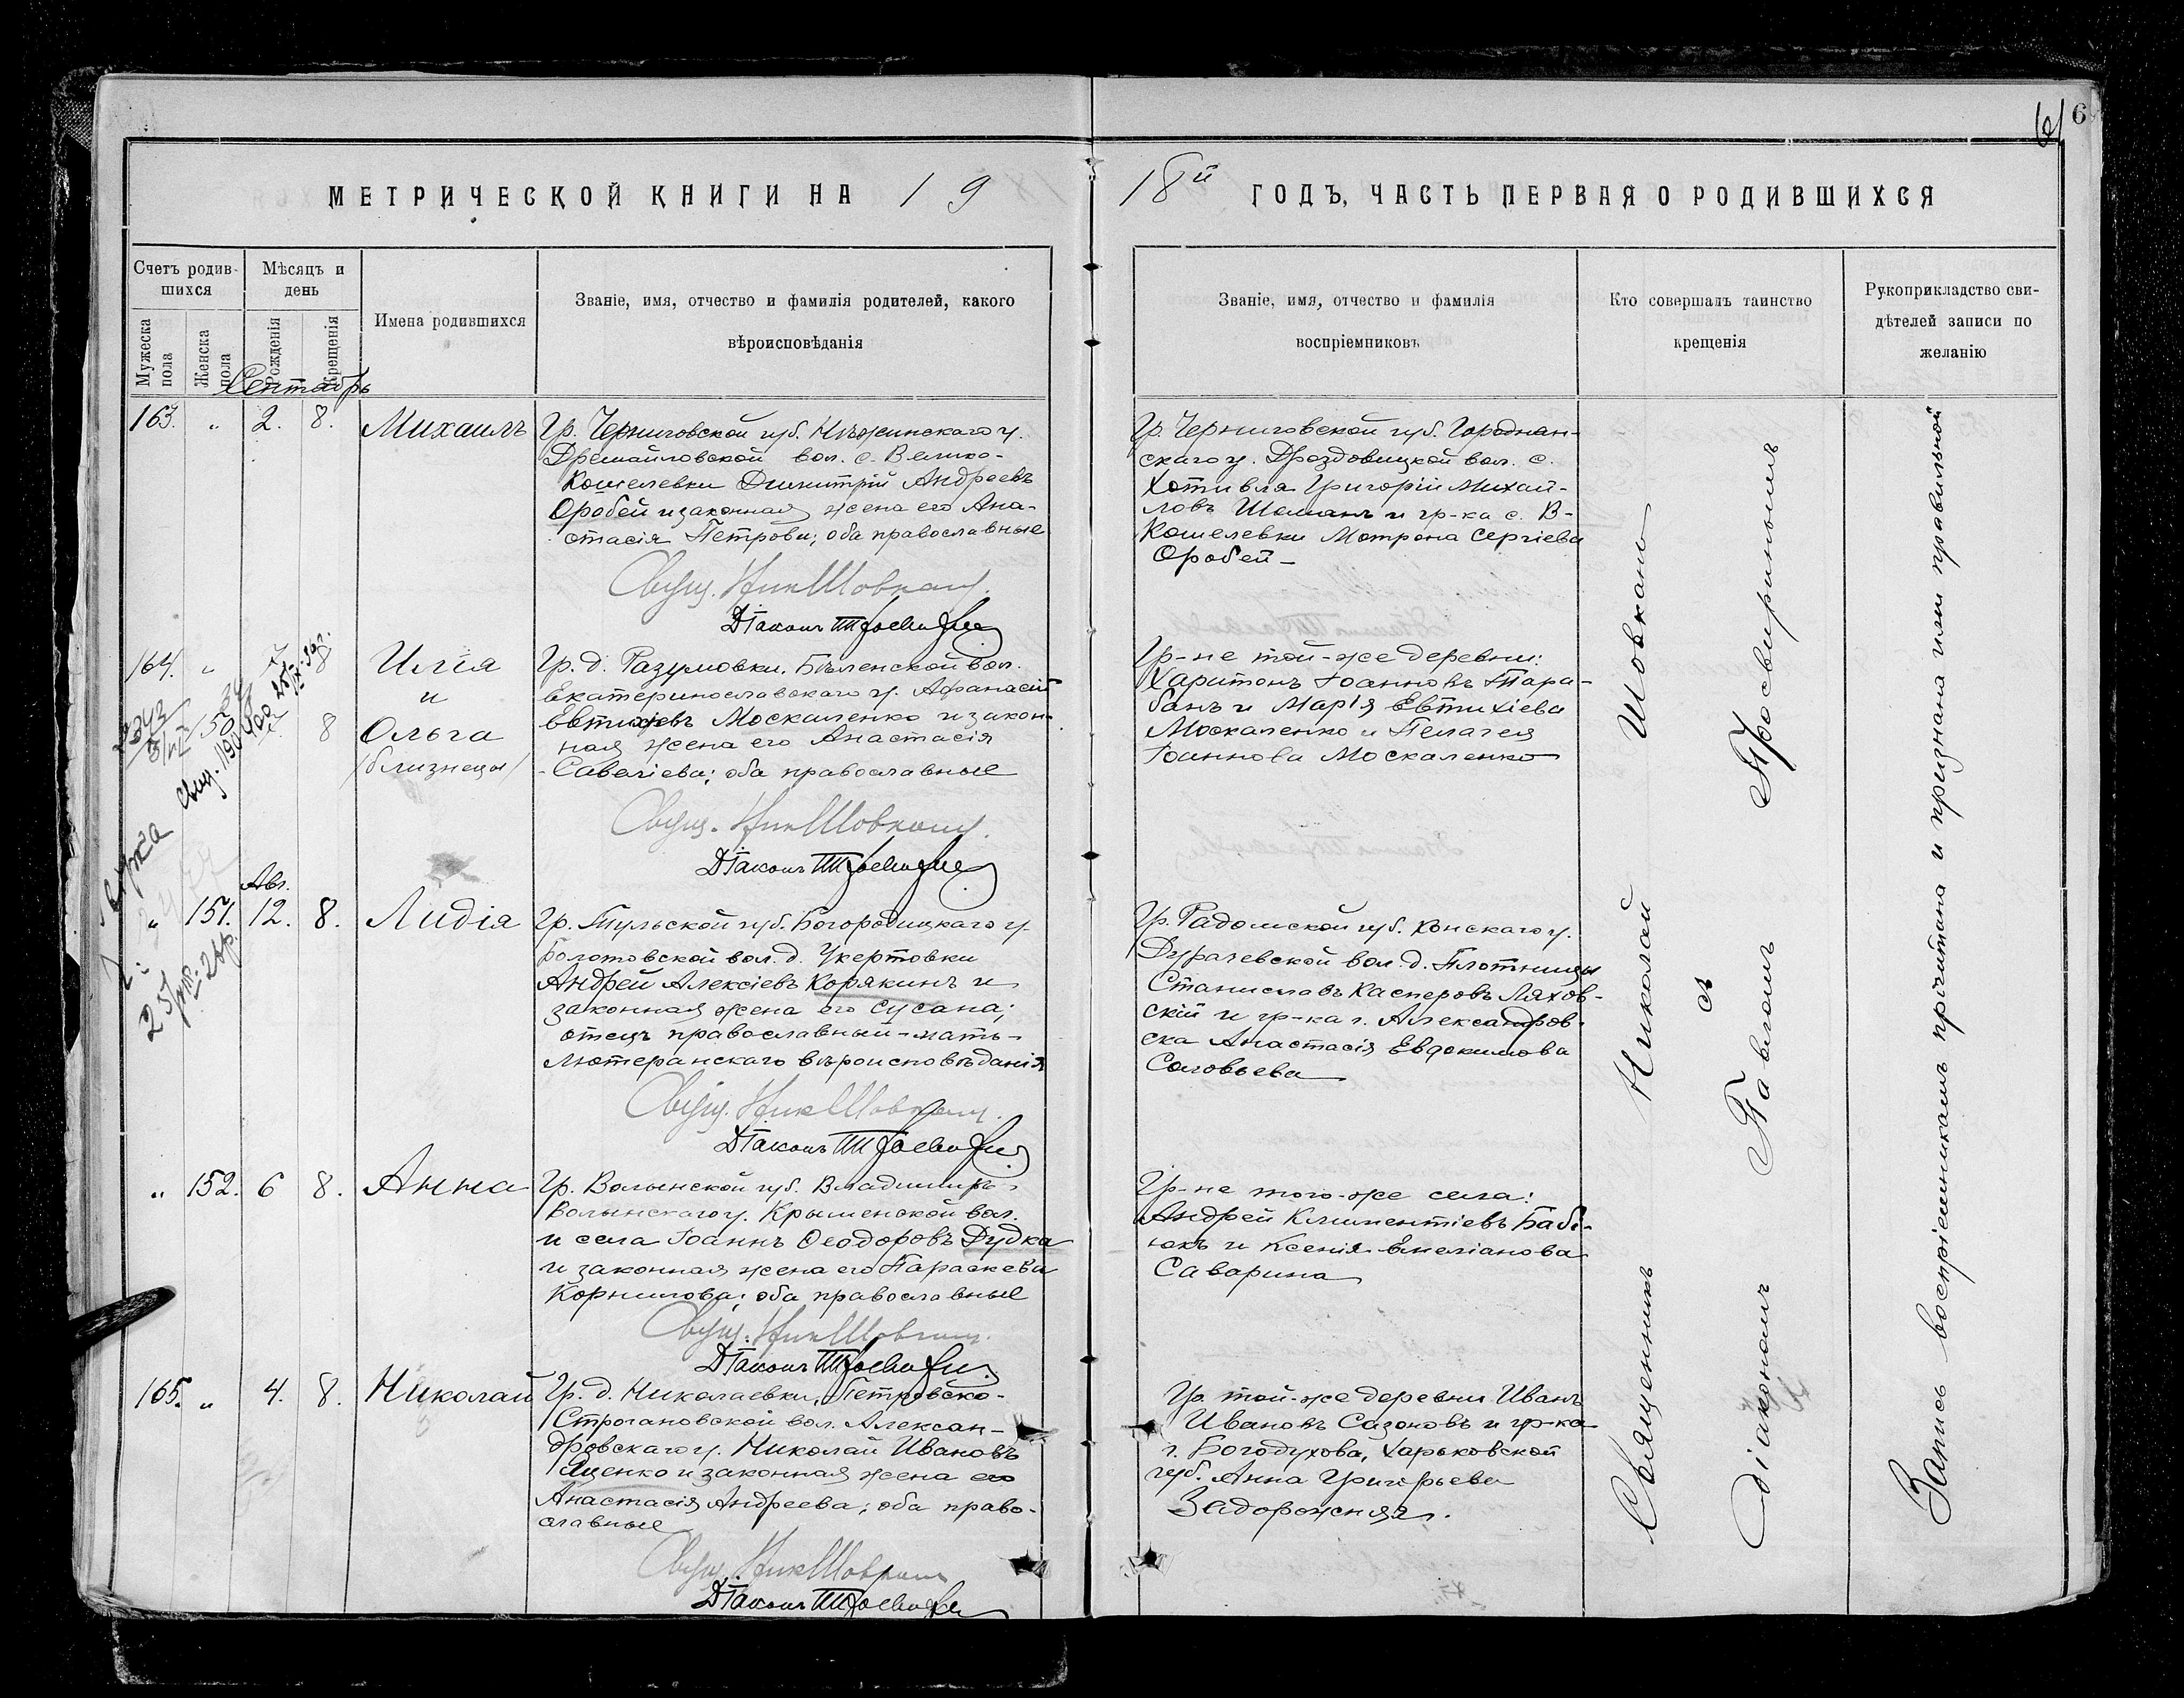 6
61
МЕТРИЧЕСКОЙ КНИГИ НА 19
18й ГОДЪ, ЧАСТЬ ПЕРВАЯ О РОДИВШИХСЯ
Счетъ родив-
шихся
Мужеска пола
Женска пола
Мѣсяцъ и
день
Рожденія
Крещенія
Имена родившихся
Званіе, имя, отчество и фамилія родителей, какого
вѣроисповѣданія
Званіе, имя, отчество и фамилія
воспріемниковъ
Кто совершалъ таинство
крещенія
Рукоприкладство сви-
дѣтелей записи по
желанію
Сентябрь
163. " 2. 8. Михаилъ
Гр. Черниговской губ. Нѣжинскаго у.
Дремайловской вол. с. Велико-
Кошелевки Димитрій Андреевъ
Оробей и законная жена его Ана-
стасія Петрова; оба православные
Свящ. Ник Шовкань.
Діаконъ
Гр. Черниговской губ. Городнян-
скаго у. Дроздовицкой вол. с.
Хотивля Григорій Михай-
ловъ и гр-ка с. В-
Кошелевки Мотрона Сергіева
Оробей
164. " 8 Илія
и
150 8 Ольга
/близнецы/
Гр. д. Разумовки, Бѣленской вол.
Екатеринославскаго у. Афанасій
Евтихіевъ Москаленко и закон-
ная жена его Анастасія
Савеліева; оба православные
Свящ. Ник Шовкань.
Діаконъ
Гр-не той-же деревни:
Харитонъ Іоанновъ Тара-
банъ и Марія Евтихіева
Москаленко и Пелагея
Іоаннова Москаленко
Авг.
" 151. 12. 8. Лидія
Гр. Тульской губ. Богородицкаго у.
Болотовской вол. д. Укертовки
Андрей Алексіевъ Корякинъ и
законная жена его Сусана;
отецъ православный - мать -
лютеранскаго вѣроисповѣданія
Свящ. Ник Шовкань.
Діаконъ
Гр. Радомской губ. Конскаго у.
вол. д. Плотницы
Станиславъ Касперовъ Ляхов-
скій и гр-ка г. Александров-
ска Анастасія Евдокимова
Соловьева
" 152. 6 8. Анна
Гр. Волынской губ. Владимиръ-
Волынскаго у. Крымской вол.
и села Іоаннъ Ѳеодоровъ Дудка
и законная жена его Параскева
Корнилова; оба православные
Свящ. Ник Шовкань.
Діаконъ
Гр-не того-же села:
Андрей Климентіевъ Баб-
юкъ и Ксенія Емеліанова
Саварина
165. " 4. 8. Николай
Гр. д. Николаевки, Петровско-
Строгановской вол. Алексан-
дровскаго у. Николай Ивановъ
Яценко и законная жена его
Анастасія Андреева; оба право-
славные
Свящ. Ник Шовкань
Діаконъ
Гр. той-же деревни Иванъ
Ивановъ Сазоновъ и гр-ка
г. Богодухова, Харьковской
губ. Анна Григорьева
Задорожняя.
Священникъ Николай Шовкань
съ
діакономъ Павломъ Просвиринымъ
Запись воспріемникамъ прочитана и признана ими правильной